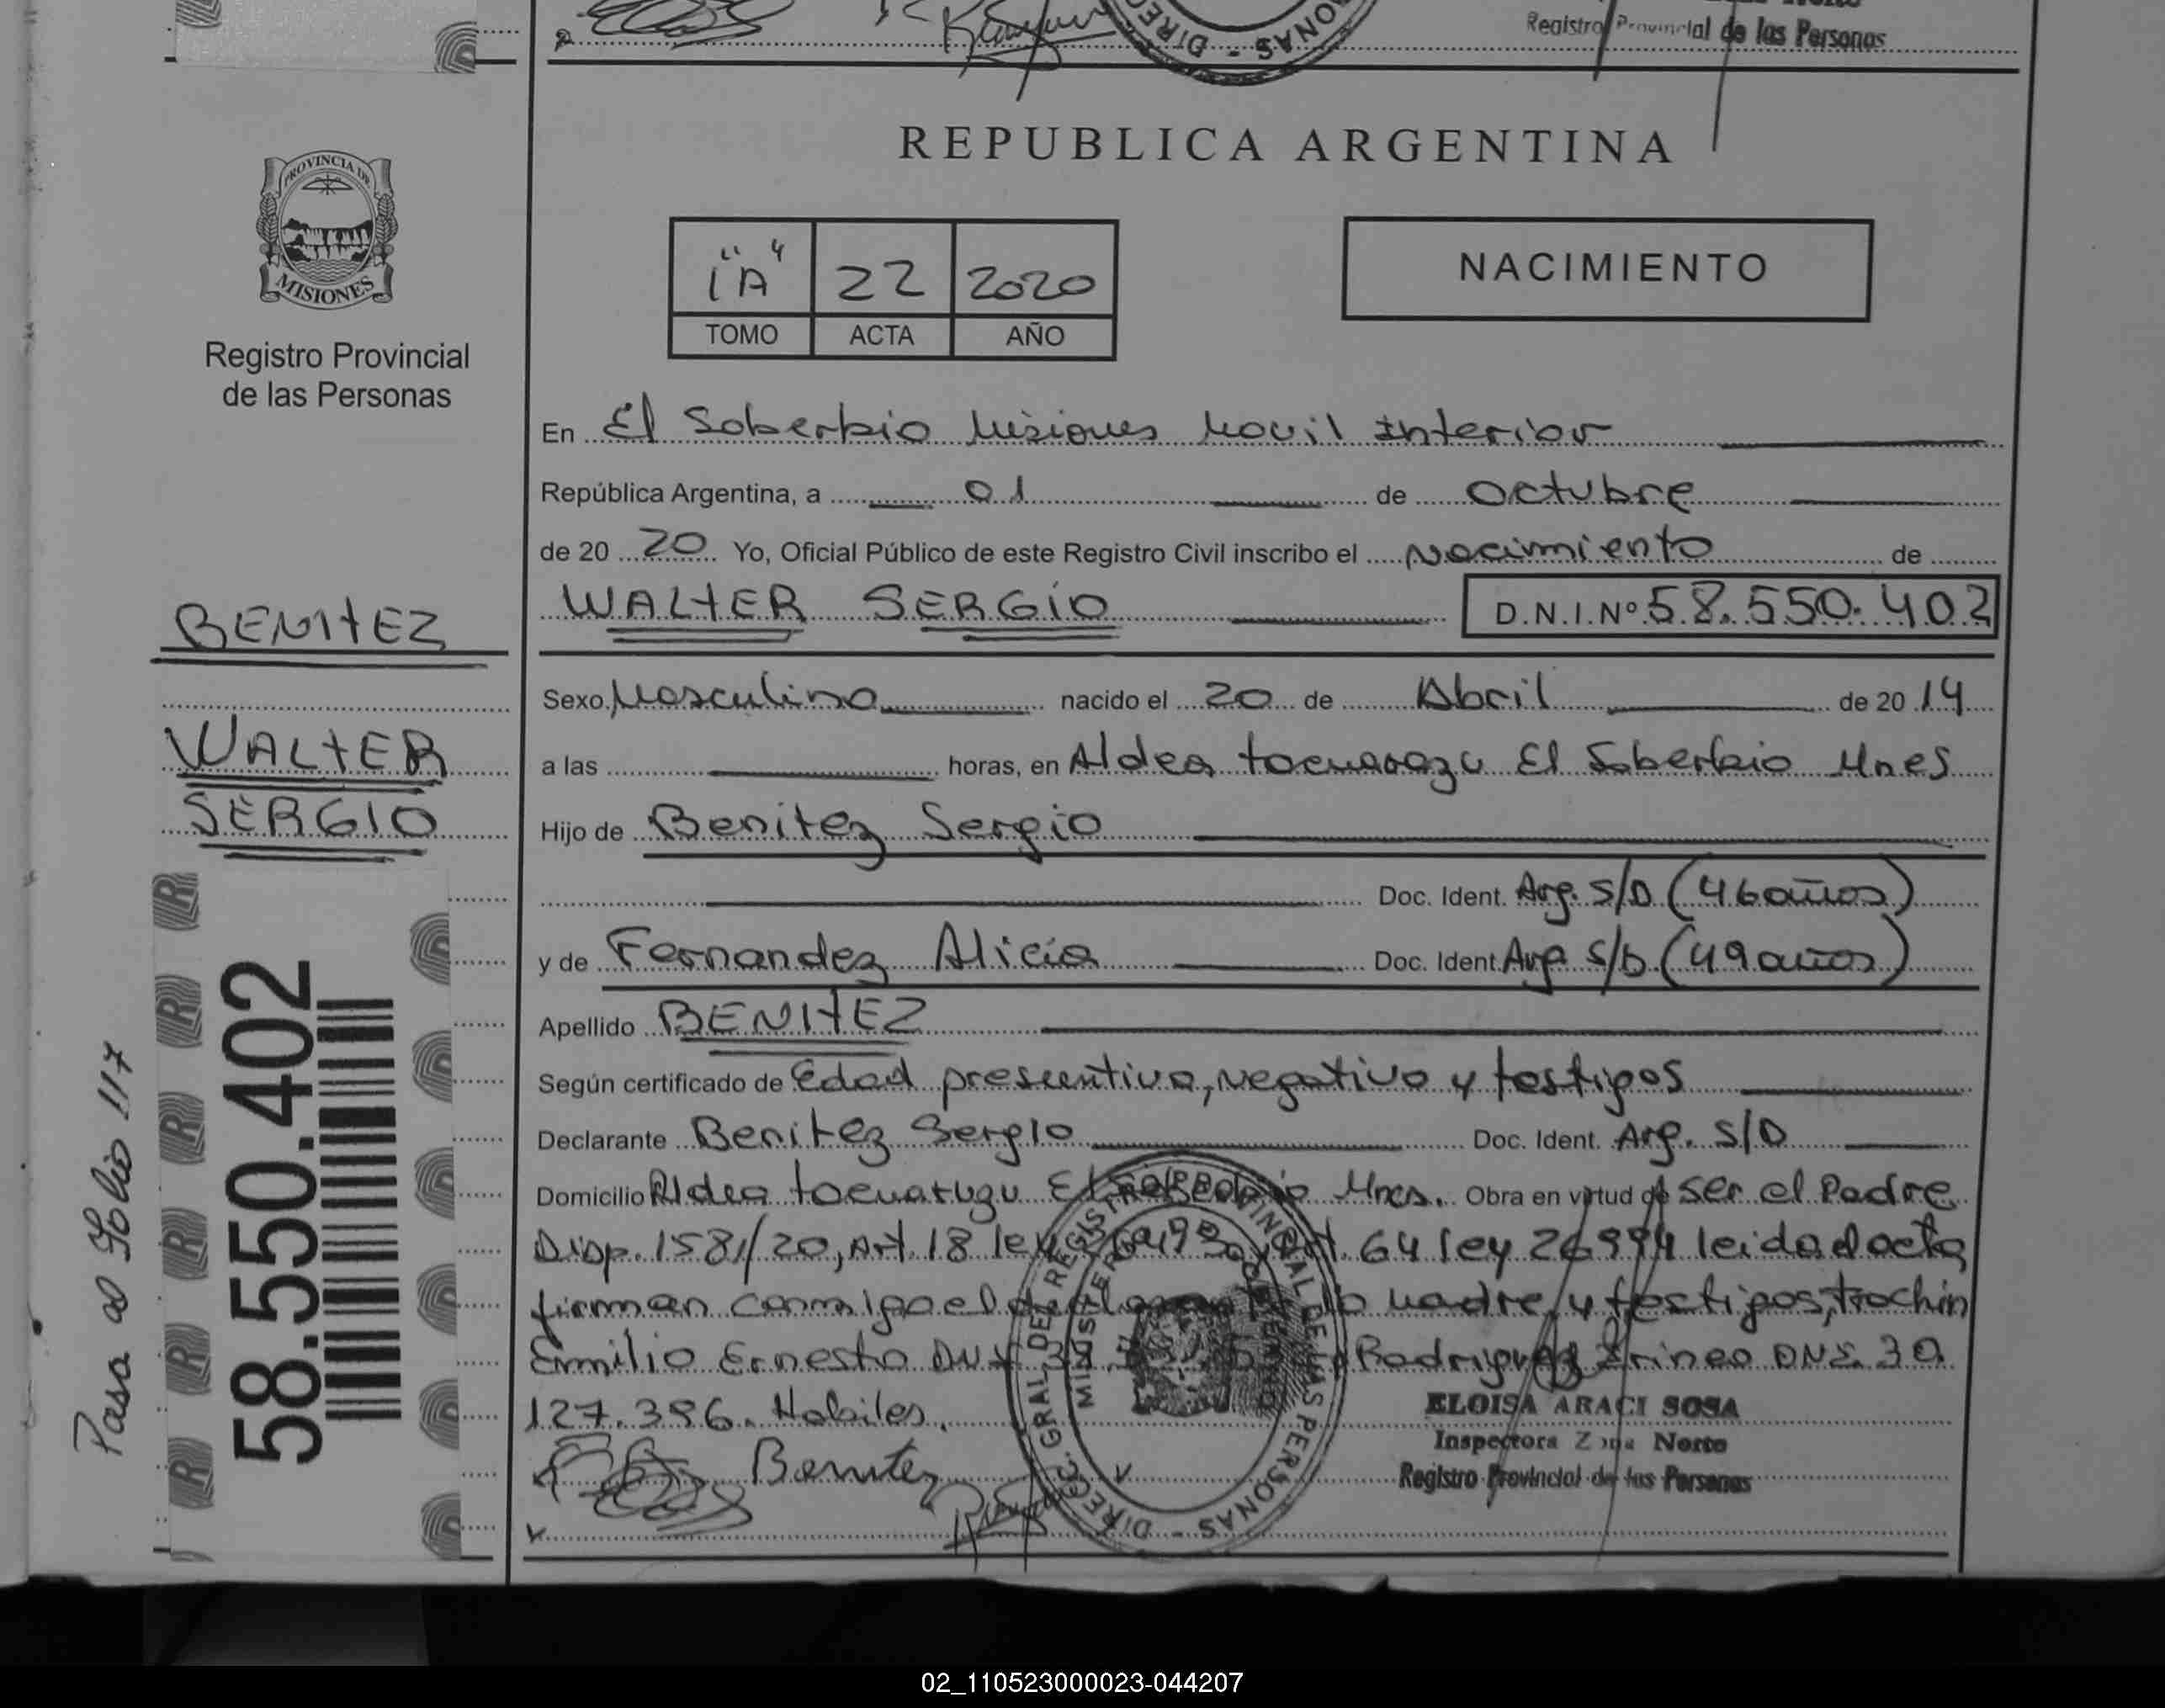 Registro Provincial de las Personas
REPUBLICA ARGENTINA
PROVINCIA DE
MISIONES
Registro Provincial
de las Personas
1 "A" 22 2020
TOMO ACTA AÑO
NACIMIENTO
En El Soberbio Misiones Movil Interior
República Argentina, a 01 de Octubre
de 20 20 Yo, Oficial Público de este Registro Civil inscribo el Nacimiento de
WALTER SERGIO D.N.I.Nº 58.550.402
BENITEZ
WALTER
SERGIO
Sexo Masculino nacido el 20 de Abril de 20 14
a las horas, en Aldea El Soberbio Mnes
Hijo de Benitez Sergio
Doc. Ident. Arg. S/D (46 años)
y de Fernandez Alicia Doc. Ident. Arg S/D (49 años)
Apellido BENITEZ
Según certificado de Edad presuntiva, negativo y testigos
Declarante Benitez Sergio Doc. Ident. Arg. S/D
Domicilio Aldea El Soberbio Mnes. Obra en virtud de ser el Padre
Disp. 1581/20, Art. 18 ley Art. 64 ley 26994 leida el acta
firman conmigo el la madre y testigos, trochin
Emilio Ernesto DNI Rodriguez Irineo DNI 39
127.396. Habiles.
Benitez
ELOISA ARACI SOSA
Inspectora Zona Norte
Registro Provincial de las Personas
DIREC. GRAL. DEL REGISTRO PROVINCIAL DE LAS PERSONAS
58.550.402
Pasa al folio 117
02_110523000023-044207